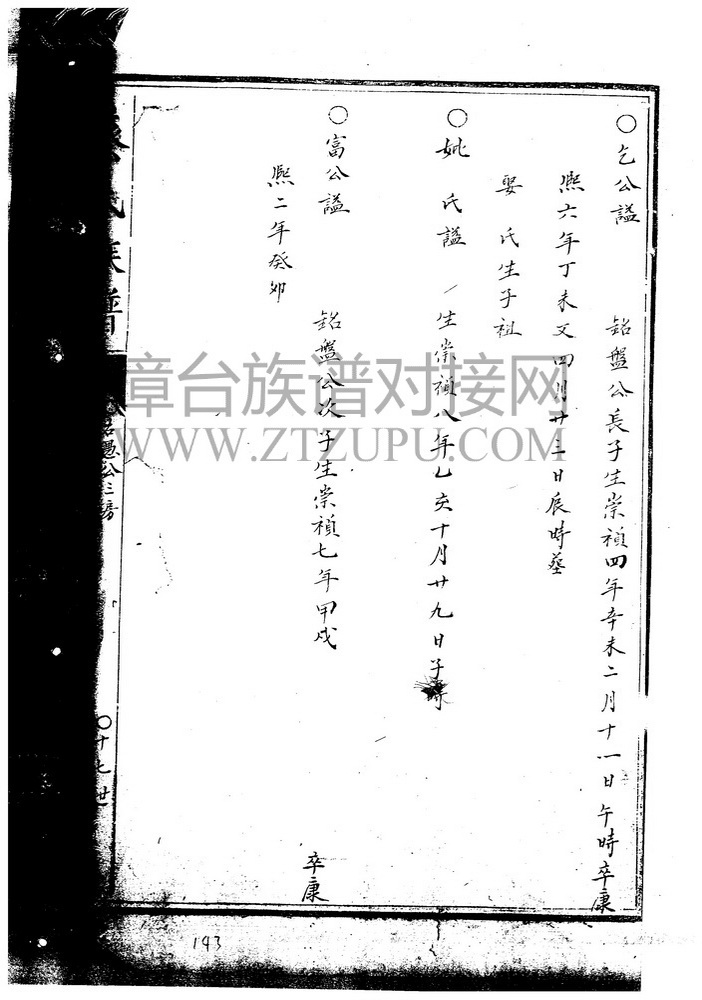 ○乞公諡
鉊盤公長子生崇禎四年辛未二月十一日午時卒康
熙六年丁未又四月廿三日辰時葬
娶 氏生子祖
○姚 氏諡
生崇禎八年乙亥十月廿九日子時
○富公諡
鉊盤公次子生崇禎七年甲戌
卒康
熙二年癸卯
氏族譜
愚公三房
○十七世
143
章台族谱对接网
WWW.ZTZUPU.COM